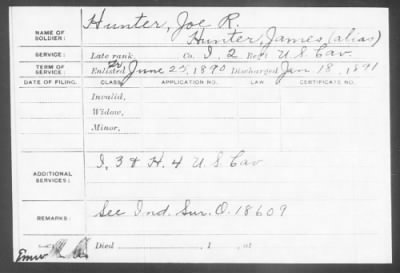 NAME OF SOLDIER: Hunter, Joe R.
Hunter, James (alias)
SERVICE: Late rank, Co. I, 2 Reg't U S Cav
TERM OF SERVICE: Enlisted June 25, 1890 Discharged Jan 18, 1891
DATE OF FILING. CLASS. APPLICATION NO. LAW. CERTIFICATE NO.
Invalid,
Widow,
Minor,
ADDITIONAL SERVICES: I, 3 & H. 4 U S Cav
REMARKS: See Ind. Sur. O. 18609
Died , 1 , at